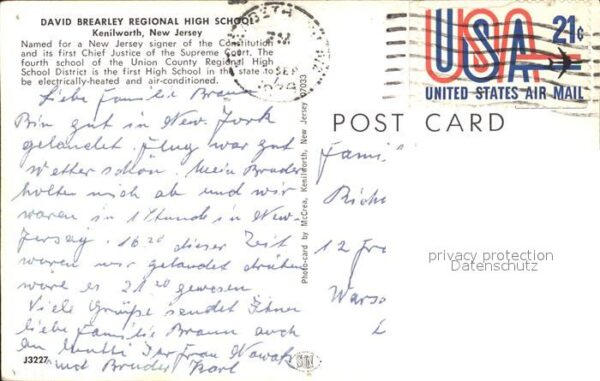 DAVID BREARLEY REGIONAL HIGH SCHOOL
Kenilworth, New Jersey
Named for a New Jersey signer of the Constitution
and its first Chief Justice of the Supreme Court. The
fourth school of the Union County Regional High
School District is the first High School in the state to
be electrically-heated and air-conditioned.
Liebe Familie Braun
Bin gut in New. York
gelandet. Flug war gut
Wetter schön. Mein Bruder
holten mich ab und wir
waren in 1 Stunde in New-
Jersay. 16 20 dieser Zeit
waren wir gelandet drüben
ware es 21 20 gewesen
Viele Grüße sendet Ihnen
liebe Familie Braun auch
an Mutti Ihr Frau Nowak
und Bruder Karl
J3227
Photo-card by McCrea, Kenilworth, New Jersey 07033
PM
SEP
USA 21¢
UNITED STATES AIR MAIL
POST CARD
Fami
Rich
12 Fra
Warso
privacy protection
Datenschutz